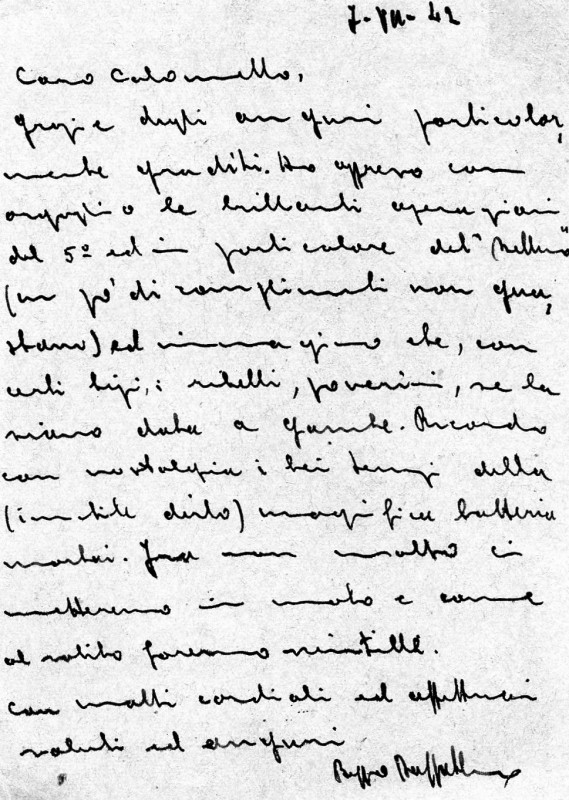 7-VII-42
Caro Colonnello,
grazie degli auguri particolar,
mente graditi. Ho appreso con
orgoglio le brillanti operazioni
del 5º ed in particolare del "Belluno"
(un pò di complimenti non gua,
stano) ed immagino che, con
certi tipi, i ribelli, poverini, se la
siano data a gambe. Ricordo
con nostalgia i bei tempi della
(inutile dirlo) magnifica batteria
mortai. Fra non molto ci
metteremo in moto e come
al solito faremo scintille.
Con molti cordiali ed affettuosi
saluti ed auguri